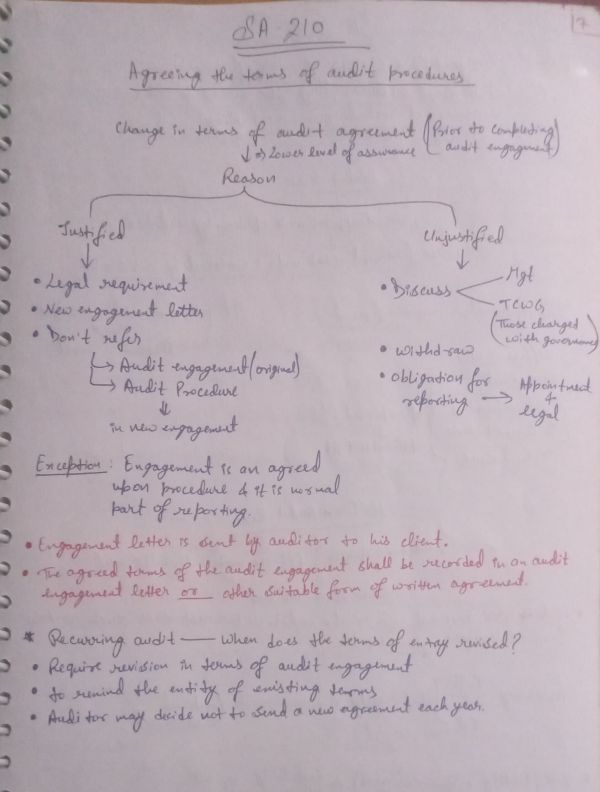 SA 210
17
Agreeing the terms of audit procedures
Change in terms of audit agreement (Prior to completing
audit engagement)
↓ ⇒ Lower level of assurance
Reason
Justified
• Legal requirement
• New engagement letter
• Don't refer
→ Audit engagement (original)
→ Audit Procedure
⇓
in new engagement
Unjustified
• Discuss
Mgt
TCWG
(Those charged
with governance)
• withd-raw
• obligation for
reporting → Appointment
+
legal
Exception: Engagement is an agreed
upon procedure & it is normal
part of reporting.
• Engagement letter is sent by auditor to his client.
• The agreed terms of the audit engagement shall be recorded in an audit
engagement letter or other suitable form of written agreement.
* Recurring audit — when does the terms of entry revised?
• Require revision in terms of audit engagement
• to remind the entity of existing terms
• Auditor may decide not to send a new agreement each year.